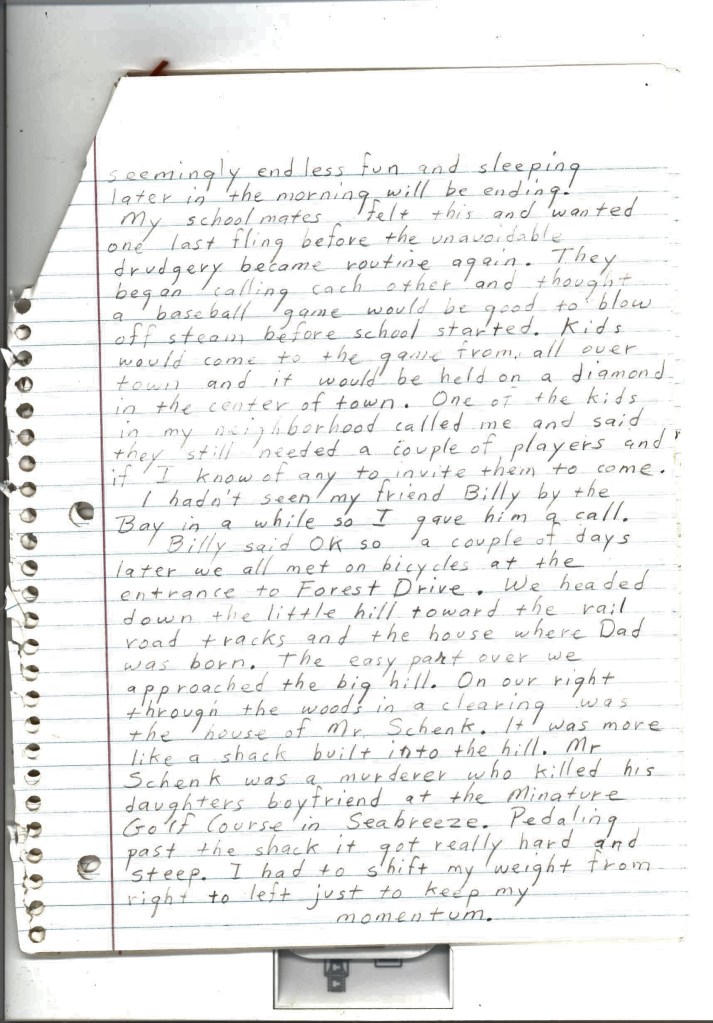 seemingly endless fun and sleeping
later in the morning will be ending.
My schoolmates felt this and wanted
one last fling before the unavoidable
drudgery became routine again. They
began calling each other and thought
a baseball game would be good to blow
off steam before school started. Kids
would come to the game from all over
town and it would be held on a diamond
in the center of town. One of the kids
in my neighborhood called me and said
they still needed a couple of players and
if I know of any to invite them to come.
I hadn't seen my friend Billy by the
Bay in a while so I gave him a call.
Billy said OK so a couple of days
later we all met on bicycles at the
entrance to Forest Drive. We headed
down the little hill toward the rail
road tracks and the house where Dad
was born. The easy part over we
approached the big hill. On our right
through the woods in a clearing was
the house of Mr. Schenk. It was more
like a shack built into the hill. Mr
Schenk was a murderer who killed his
daughters boyfriend at the Minature
Golf Course in Seabreeze. Pedaling
past the shack it got really hard and
steep. I had to shift my weight from
right to left just to keep my
momentum.